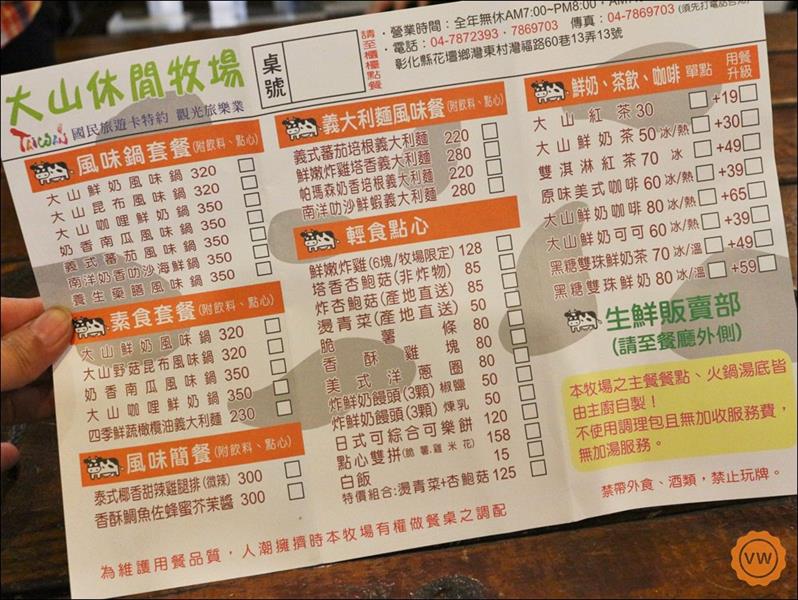 大山休閒牧場
國民旅遊卡特約 觀光旅樂業
桌號
請至櫃檯點餐
・營業時間：全年無休AM7:00~PM8:00
・電話：04-7872393．7869703 傳真：04-7869703
彰化縣花壇鄉灣東村灣福路60巷13弄13號
風味鍋套餐(附飲料、點心)
大山鮮奶風味鍋 320
大山昆布風味鍋 320
大山咖哩鮮奶鍋 350
奶香南瓜風味鍋 350
義式蕃茄風味鍋 350
南洋奶香叻沙海鮮鍋 350
養生藥膳風味鍋 350
素食套餐(附飲料、點心)
大山鮮奶風味鍋 320
大山野菇昆布風味鍋 320
奶香南瓜風味鍋 350
大山咖哩鮮奶鍋 350
四季鮮蔬橄欖油義大利麵 230
風味簡餐(附飲料、點心)
泰式椰香甜辣雞腿排(微辣) 300
香酥鯛魚佐蜂蜜芥茉醬 300
義大利麵風味餐(附飲料、點心)
義式蕃茄培根義大利麵 220
鮮嫩炸雞塔香義大利麵 280
帕瑪森奶香培根義大利麵 220
南洋叻沙鮮蝦義大利麵 280
輕食點心
鮮嫩炸雞(6塊/牧場限定) 128
塔香杏鮑菇(非炸物) 85
炸杏鮑菇(產地直送) 85
燙青菜(產地直送) 50
脆薯條 80
香酥雞塊 80
美式洋蔥圈 80
炸鮮奶饅頭(3顆)椒鹽 50
炸鮮奶饅頭(3顆)煉乳 50
日式可綜合可樂餅 120
點心雙拼(脆薯.雞米花) 158
白飯 15
特價組合:燙青菜+杏鮑菇 125
鮮奶、茶飲、咖啡 單點 用餐升級
大山紅茶 30 +19
大山鮮奶茶 50 冰/熱 +30
雙淇淋紅茶 70 冰 +49
原味美式咖啡 60 冰/熱 +39
大山鮮奶咖啡 80 冰/熱 +65
大山鮮奶可可 60 冰/熱 +39
黑糖雙珠鮮奶茶 70 冰/溫 +49
黑糖雙珠鮮奶 80 冰/溫 +59
生鮮販賣部
(請至餐廳外側)
本牧場之主餐餐點、火鍋湯底皆
由主廚自製！
不使用調理包且無加收服務費，
無加湯服務。
禁帶外食、酒類，禁止玩牌。
為維護用餐品質，人潮擁擠時本牧場有權做餐桌之調配
VW